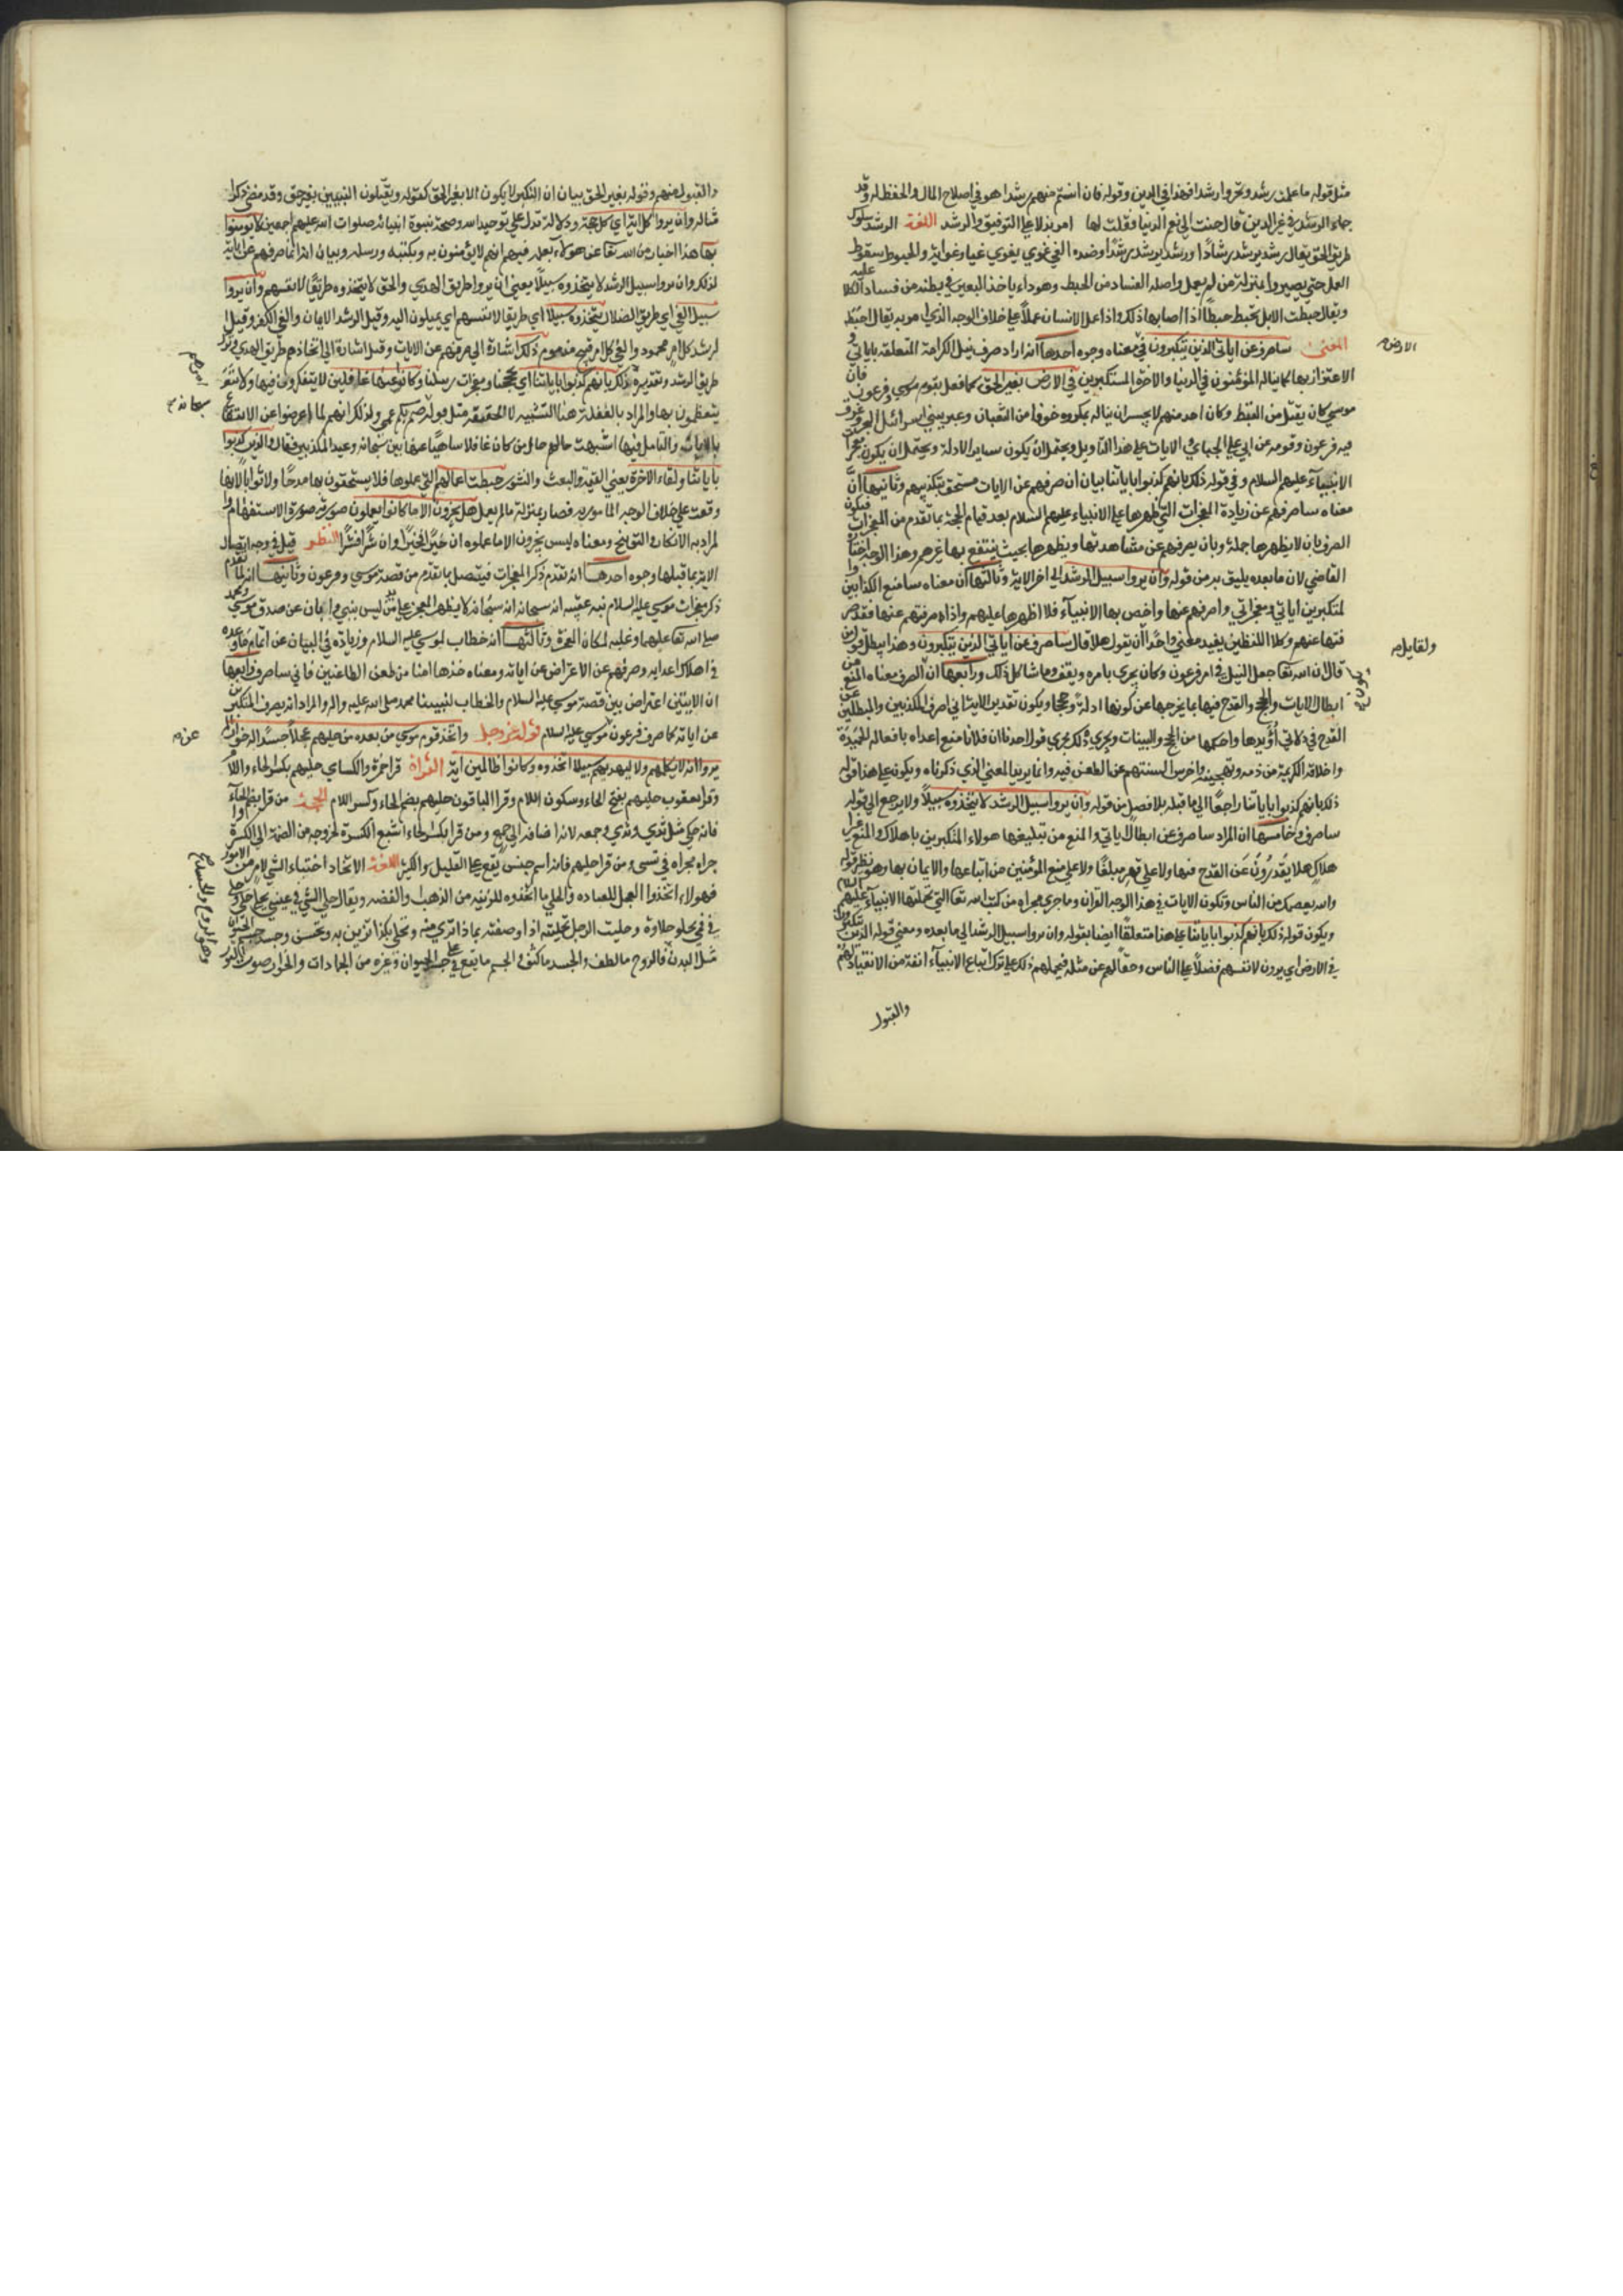 مثل قوله ما علمت رشدا وتحروا رشدا فهذا في الدين وقوله فان انستم منهم رشدا هو في اصلاح المال والحفظ له وقد
جاء الرشد في غير الدين قال حنت الى نعم الدنيا فقلت لها امو بذلا على التوفيق والرشد اللغة الرشد سلوك
طريق الحق يقال رشد يرشد رشادا ورشد يرشد رشدا وضده الغي غوى يغوى غيا وغواية والحبوط سقوط
العمل حتى يصير وا بمنزلة من لم يعمل واصله الفساد من الحبط وهو داء ياخذ البعير في بطنه من فساد الكلا عليه
ويقال حبطت الابل تحبط حبطا اذا اصابها ذلك واذا عمل الانسان عملا على خلاف الوجه الذي امر به يقال احبطه
المعنى ساصرف عن اياتي الذين يتكبرون في معناه وجوه احدها انه اراد صرف نيل الكرامة المتعلقة باياتي و
الاعتزاز بها كما يناله المؤمنون في الدنيا والاخرة المستكبرين في الارض بغير الحق كما فعل بقوم موسى وفرعون فان
موسى كان يقتل من القبط وكان احد منهم لا يجسر ان يناله بمكروه خوفا من الثعبان وعبر ببني اسرائيل البحر وغرق
فيه فرعون وقومه عن ابي علي الجبائي والايات على هذا التاويل ويحتمل ان يكون ساير الادلة ويحتمل ان يكون معجزات
الانبياء عليهم السلام وفي قوله ذلك بانهم كذبوا باياتنا بيان ان صرفهم عن الايات مستحق بتكذيبهم وثانيها ان
معناه ساصرفهم عن زيادة المعجزات التي اظهرها على الانبياء عليهم السلام بعد قيام الحجة بما تقدم من المعجزات فيكون
الصرف بان لا يظهرها جملة وبان يصرفهم عن مشاهدتها ويظهرها بحيث ينتفع بها غيرهم وهذا الوجه اختاره
القاضي لان ما بعده يليق به من قوله وان يروا سبيل الرشد الى اخر الاية وثالثها ان معناه سامنع الكذابين وا
لمتكبرين اياتي ومعجزاتي واصرفهم عنها واخص بها الانبياء فلا اظهرها عليهم واذا صرفتهم عنها فقد صر
فتها عنهم وكلا اللفظين يفيد معنى واحدا ان يقول هلا قال ساصرف عن اياتي الذين يتكبرون وهذا يبطل قول من
قال ان الله تعالى جعل النيل في امر فرعون وكان يجري بامره ويقف وما شاكل ذلك ورابعها ان الصرف معناه المنع من
ابطال الايات والحجج والقدح فيها بما يخرجها عن كونها ادلة وحججا ويكون تقدير الاية اني اصرف المكذبين والمبطلين عن
القدح في دلالتي أؤيدها واحكمها من الحجج والبينات ويجري ذلك مجرى قول احدنا ان فلانا منع اعداءه بافعاله الحميدة
واخلاقه الكريمة من ذمه وتهجينه واخرس السنتهم عن الطعن فيه وانما يريد المعنى الذي ذكرناه ويكون على هذا قوله
ذلك بانهم كذبوا باياتنا راجعا الى ما قبله بلا فصل من قوله وان يروا سبيل الرشد لا يتخذوه سبيلا ولا يرجع الى قوله
ساصرف وخامسها ان المراد ساصرف عن ابطال اياتي والمنع من تبليغها هولاء المتكبرين باهلاك والمنع
هلاك هلا يقدرون عن القدح فيها ولا على قهر مبلغها ولا على منع المؤمنين من اتباعها والايمان بها وهو نظير قوله
والله يعصمك من الناس وتكون الايات في هذا الوجه القران وما جرى مجراه من كتب الله تعالى التي تحملتها الانبياء عليهم السلام
ويكون قوله ذلك بانهم كذبوا باياتنا على هذا متعلقا ايضا بقوله وان يروا سبيل الرشد الى ما بعده ومعنى قوله الذين يتكبرون
في الارض اي يرون لانفسهم فضلا على الناس وحقا لهم عن مثله فيحملهم ذلك على ترك اتباع الانبياء انفة من الانقياد لهم
والقبول
والقبول منهم وقوله بغير الحق بيان ان التكبر لا يكون الا بغير الحق كقوله ويقتلون النبيين بغير حق وقد مضى ذكر ا
مثاله وان يروا كل اية اي كل حجة ودلالة تدل على توحيد الله وصحة نبوة انبيائه صلوات الله عليهم اجمعين لا يؤمنوا
بها هذا اخبار من الله تعالى عن هولاء بعلمه فيهم انهم لا يؤمنون به وبكتبه ورسله وبيان انه انما صرفهم عن اياته
لذلك وان يروا سبيل الرشد لا يتخذوه سبيلا يعني ان يروا طريق الهدى والحق لا يتخذوه طريقا لانفسهم وان يروا
سبيل الغي اي طريق الضلال يتخذوه سبيلا اي طريقا لانفسهم اي يميلون اليه وقيل الرشد الايمان والغي الكفر وقيل ا
لرشد كل امر محمود والغي كل امر قبيح مذموم ذلك اشارة الى صرفهم عن الايات وقيل اشارة الى اتخاذهم طريق الغي وترك
طريق الرشد وتقديره ذلك بانهم كذبوا باياتنا اي بحججنا ومعجزات رسلنا وكانوا عنها غافلين لا يتفكرون فيها ولا
يتعظمون بها والمراد بالغفلة هنا التشبيه لا الحقيقة مثل قوله صم بكم عمي وذلك انهم لما اعرضوا عن الانتفاع
بالايات والتامل فيها اشبهت حالهم حال من كان غافلا ساهيا عنها بين سبحانه وعيد المكذبين فقال والذين كذبوا
باياتنا ولقاء الاخرة يعني القيمة والبعث والنشور حبطت اعمالهم التي عملوها فلا يستحقون بها مدحا ولا ثوابا لانها
وقعت على خلاف الوجه المامور به فصار بمنزلة ما لم يعمل هل يجزون الا ما كانوا يعملون صورته صورة الاستفهام وا
لمراد به الانكار والتوبيخ ومعناه ليس يجزون الا ما عملوه ان خيرا فخيرا وان شرا فشرا النظم قيل في وجه اتصال
الاية بما قبلها وجوه احدها انه تقدم ذكر المعجزات فيتصل بما تقدم من قصة موسى وفرعون وثانيها انه لما تقدم
ذكر معجزات موسى عليه السلام نبه عقيبه انه سبحانه لا يظهر المعجز على من ليس بنبي وابان عن صدق موسى ومحمد
صلى الله تعالى عليهما وعليه لمكان المعجزة وثالثها انه خطاب لموسى عليه السلام وزيادة في البيان عن اتمام ما وعده
في اهلاك اعدائه وصرفهم عن الاعتراض عن اياته ومعناه خذها امنا من طعن الطاعنين فاني ساصرف ورابعها
ان الايتين اعتراض بين قصة موسى عليه السلام والخطاب لنبينا محمد صلى الله عليه واله والمراد انه يصرف المتكبرين
عن اياته كما صرف فرعون موسى عليه السلام قوله عز وجل واتخذ قوم موسى من بعده من حليهم عجلا جسدا له خوار الم
يروا انه لا يكلمهم ولا يهديهم سبيلا اتخذوه وكانوا ظالمين اية القراة قرا حمزة والكساي حليهم بكسر الحاء واللام
وقرا يعقوب حليهم بفتح الحاء وسكون اللام وقرا الباقون حليهم بضم الحاء وكسر اللام الحجة من قرا بضم الحاء
فانه حكي مثل ثدي وثدي وجمعه لانه اضافه الى جمع ومن قرا بكسر الحاء اتبع الكسرة لخروجه من الضمة الى الكسرة
جراه مجراه في قسي ومن قرا حليهم فانه اسم جنس يقع على القليل والكثير اللغة الاتخاذ اجتباء الشي لامر من الامور
فهولاء اتخذوا العجل للعبادة والحلي ما اتخذوه للزينة من الذهب والفضة ويقال حلي الشي في عيني يحلى وحلا
في فمي يحلو حلاوة وحليت الرجل تحلية اذا وصفته بما ذا ترى منه وتحلى بكذا تزين به وتحسن وجسد الحيوان
مثل البدن فالروح ما لطف والجسد ما كثف والجسم ما يقع على جسد الحيوان وغيره من الجمادات والخوار صوت الثور